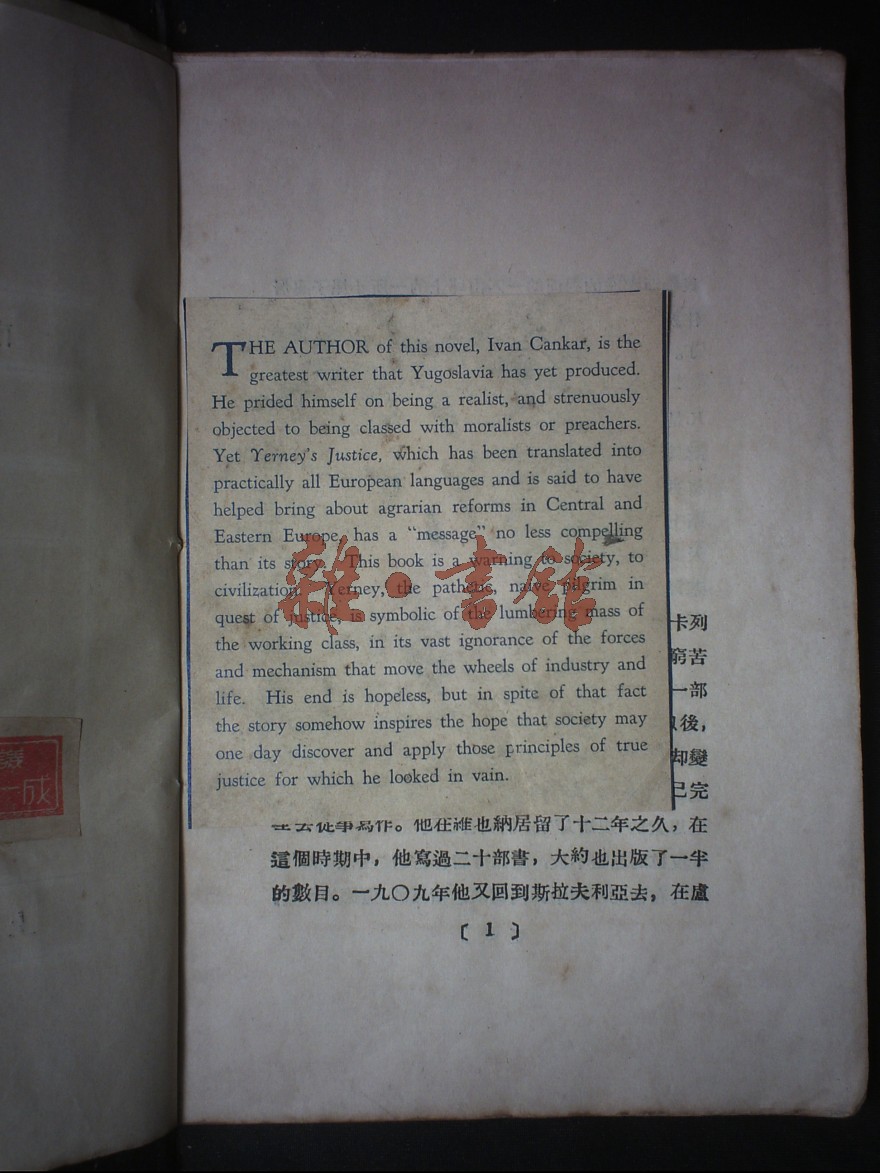 THE AUTHOR of this novel, Ivan Cankar, is the
greatest writer that Yugoslavia has yet produced.
He prided himself on being a realist, and strenuously
objected to being classed with moralists or preachers.
Yet Yerney's Justice, which has been translated into
practically all European languages and is said to have
helped bring about agrarian reforms in Central and
Eastern Europe, has a "message" no less compelling
than its story. This book is a warning to society, to
civilization. Yerney, the pathetic, naive pilgrim in
quest of justice, is symbolic of the lumbering mass of
the working class, in its vast ignorance of the forces
and mechanism that move the wheels of industry and
life. His end is hopeless, but in spite of that fact
the story somehow inspires the hope that society may
one day discover and apply those principles of true
justice for which he looked in vain.
雜·書館
卡列
窮苦
一部
後，
却變
已完
去從事寫作。他在維也納居留了十二年之久，在
這個時期中，他寫過二十部書，大約也出版了一半
的數目。一九〇九年他又回到斯拉夫利亞去，在盧
〔 1 〕
成